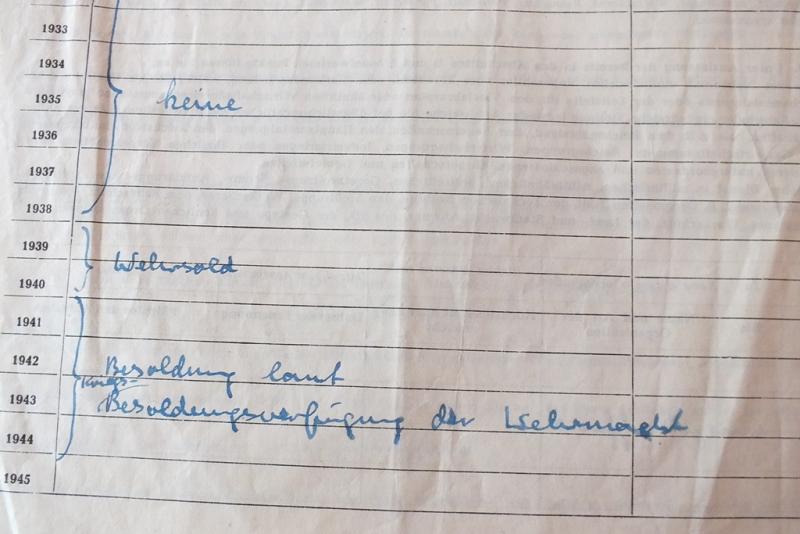 1933
1934
1935 keine
1936
1937
1938
1939
Wehrsold
1940
1941
1942 Besoldung laut
Kriegs-
1943 Besoldungsverfügung der Wehrmacht
1944
1945